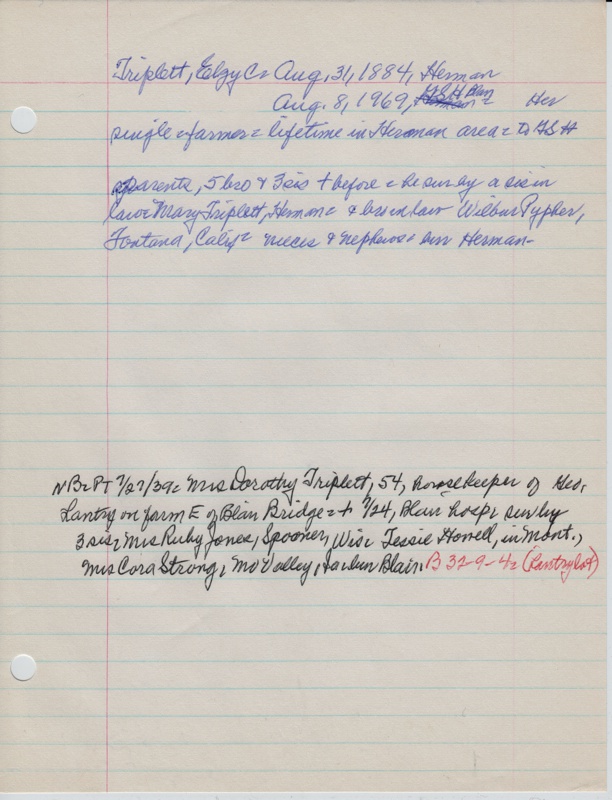 Triplett, Elzy C = Aug. 31, 1884, Herman
Aug. 8, 1969, GSH Blair = Her
single = farmer = lifetime in Herman area = D GSH
parents, 5 bro & 3 sis + before = he sur by a sis in
law = Mary Triplett, Herman = & bro in law Wilbur Pypher,
Fontana, Calif = nieces & nephews = bur Herman -
NB = PT 7/27/39 = Mrs Dorothy Triplett, 54, housekeeper of Geo.
Lantry on farm E of Blair Bridge = + 7/24, Blair hosp = sur by
3 sis = Mrs Ruby Jones, Spooner, Wis = Tessie Howell, in Mont.,
Mrs Cora Strong, Mo Valley, Ia = bur Blair. B 32-9-4 = (Lantry lot)